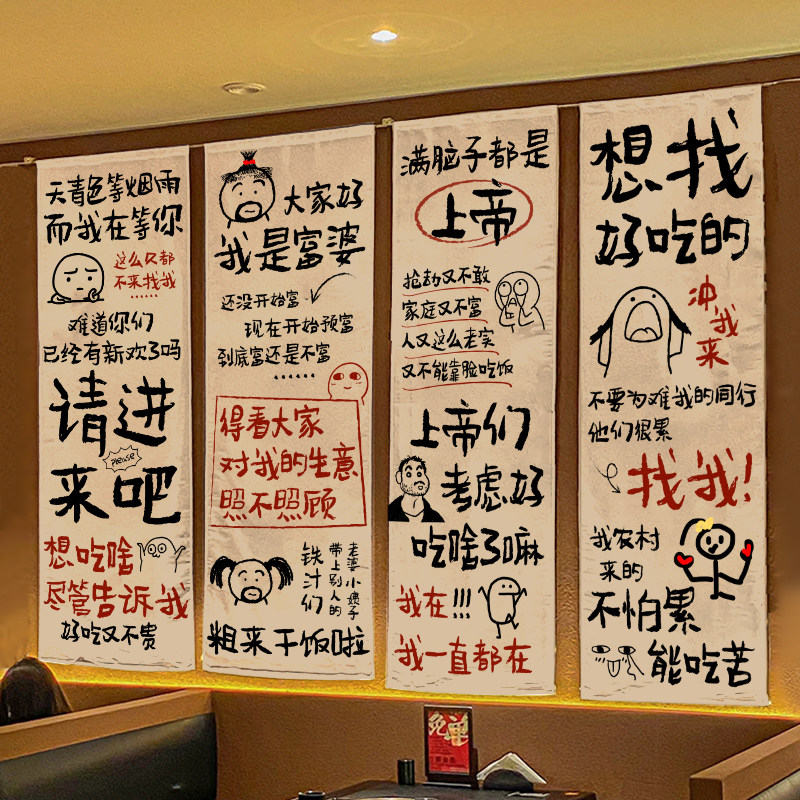 天青色等烟雨
而我在等你
这么久都
不来找我
......
难道你们
已经有新欢了吗
请进
来吧
PLEASE
想吃啥
尽管告诉我
好吃又不贵
大家好
我是富婆
还没开始富
现在开始预富
到底富还是不富
......
得看大家
对我的生意
照不照顾
铁汁们
带上别人的
老婆小姨子
粗来干饭啦
满脑子都是
上帝
抢劫又不敢
家庭又不富
人又这么老实
又不能靠脸吃饭
上帝们
考虑好
吃啥了嘛
我在!!!
我一直都在
想找
好吃的
冲我来
不要为难我的同行
他们很累
找我!
我农村
来的
不怕累
能吃苦
免单